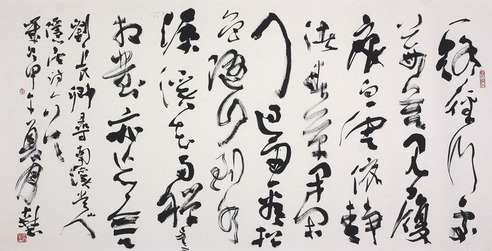 一路經行處
莓苔見履
痕白雲依靜
渚春草閉閑
門過雨看松
色隨山到水
源溪花與禪意
相對亦忘言
劉長卿尋南溪常山
隱居詩
甲午夏月